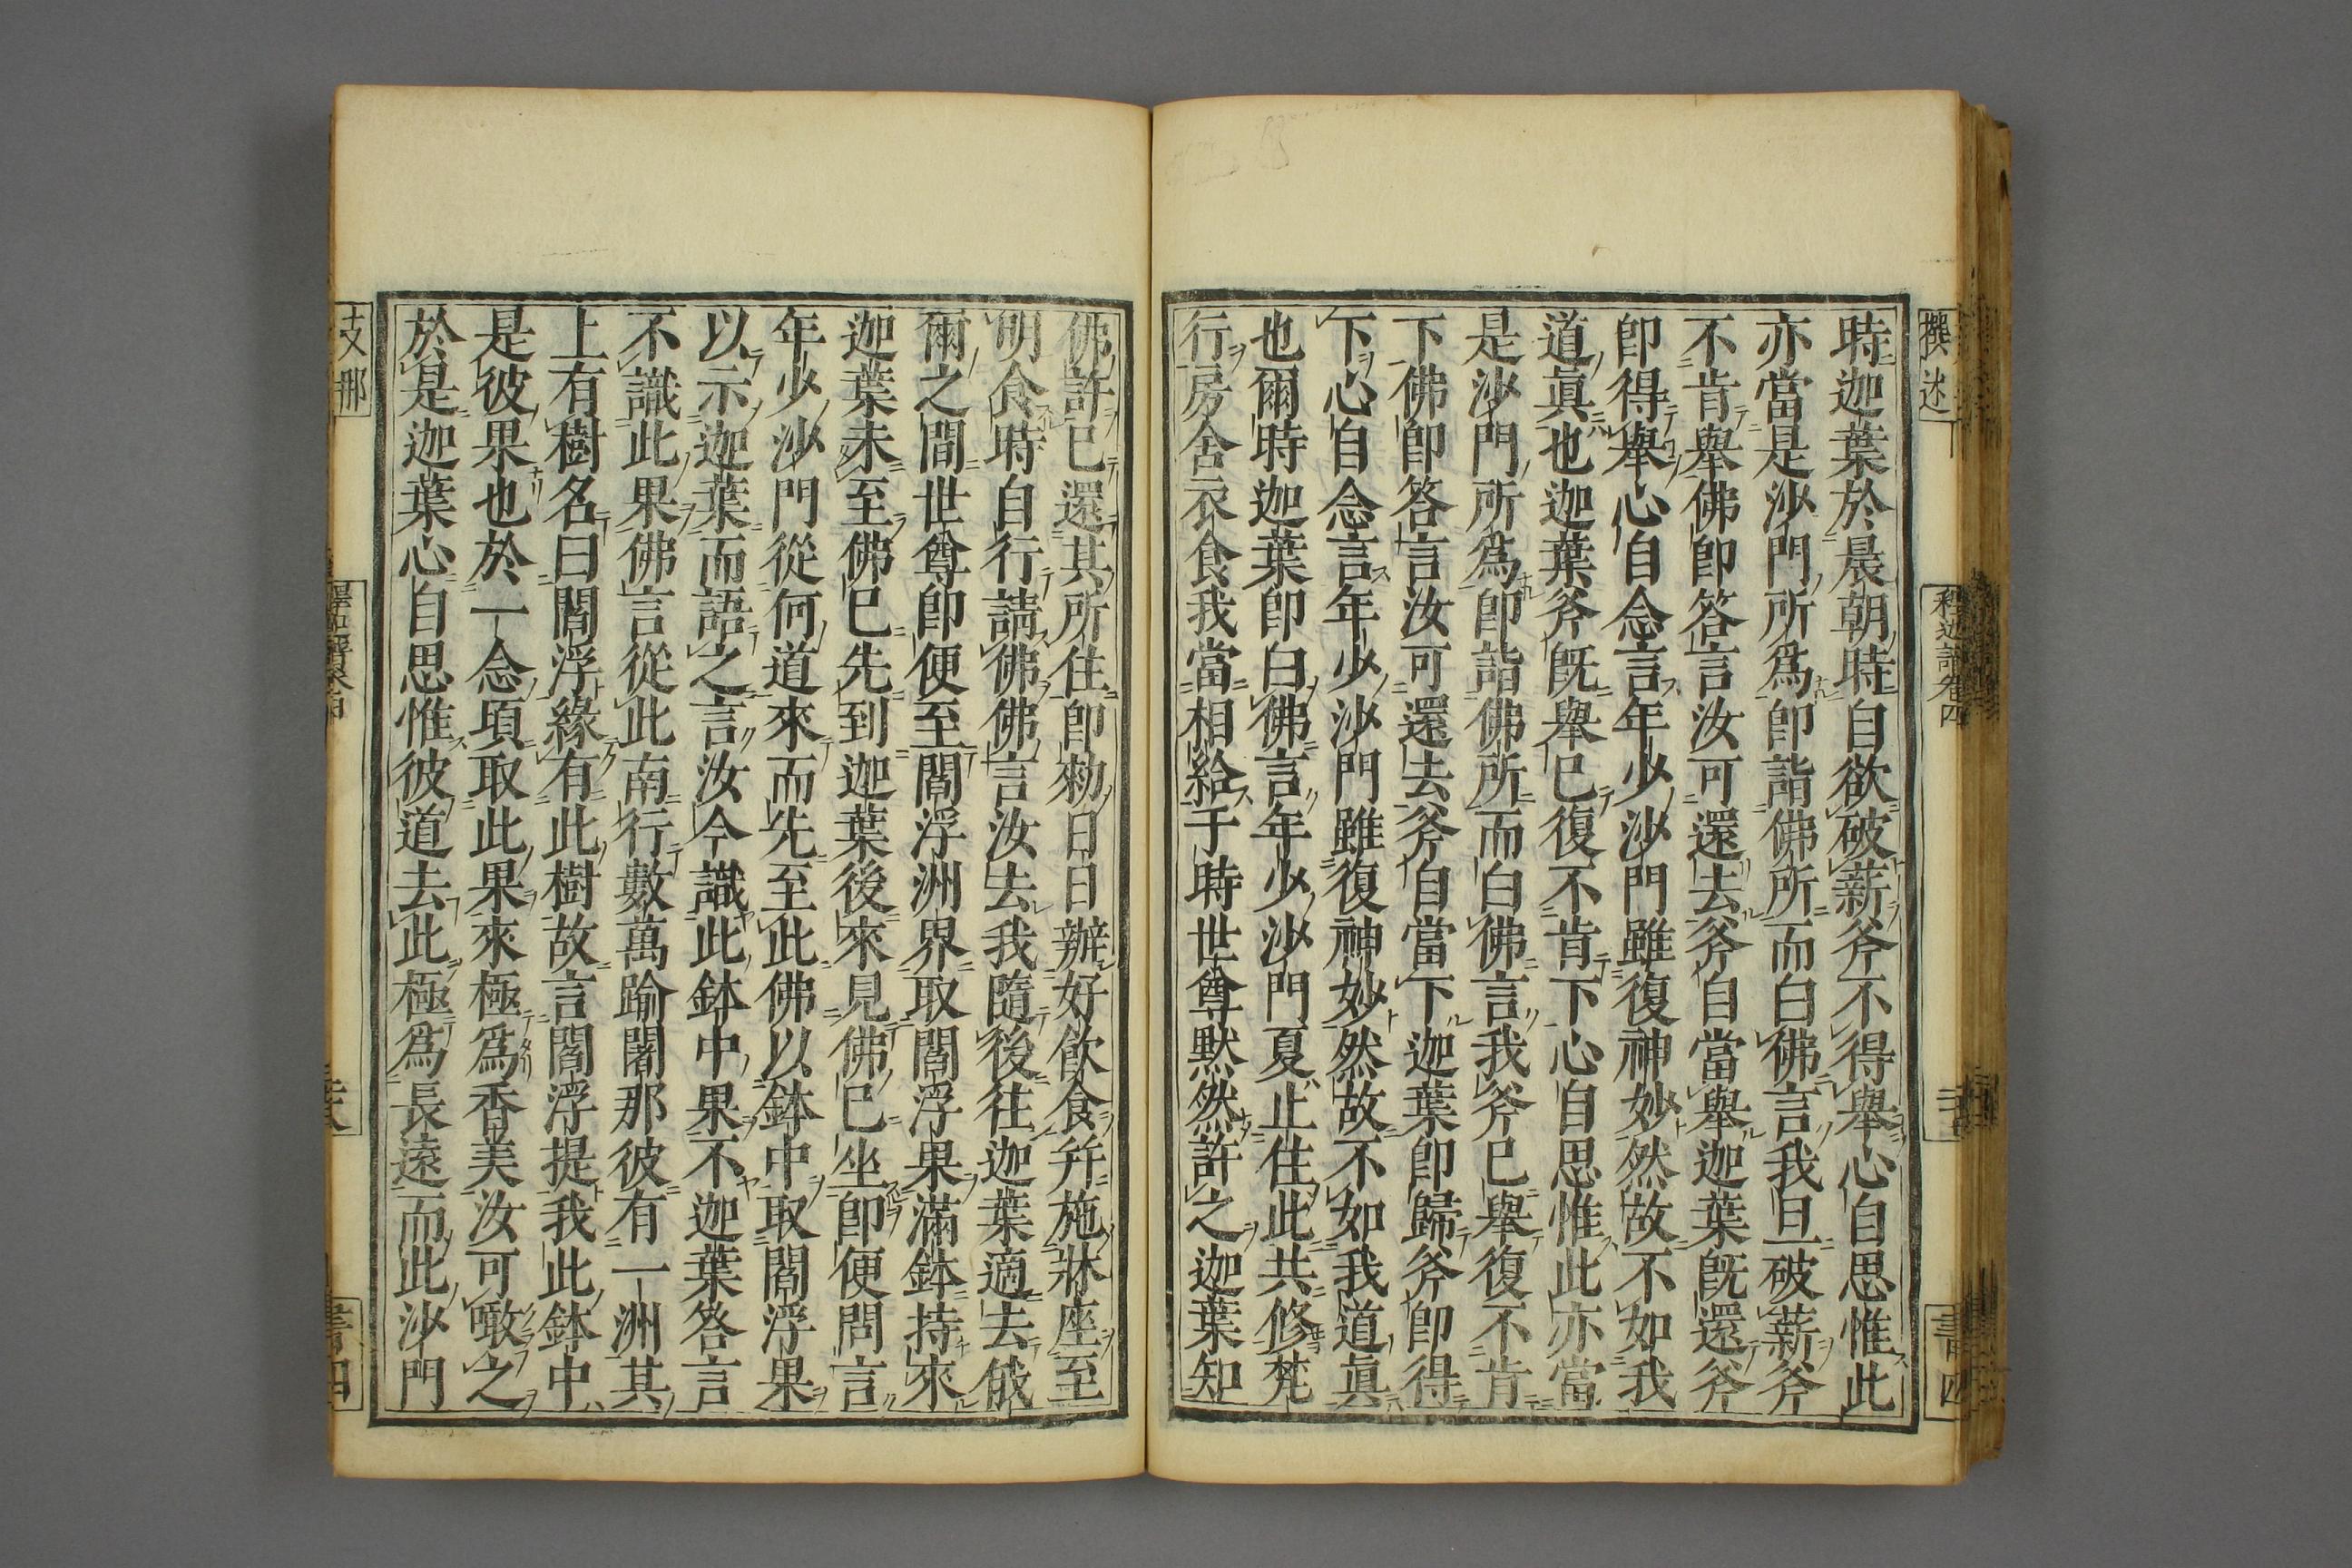 撰述
釋迦譜卷四
時迦葉於晨朝時自欲破薪斧不得舉心自思惟此
亦當是沙門所爲卽詣佛所而白佛言我旦破薪斧
不肯舉佛卽答言汝可還去斧自當舉迦葉旣還斧
卽得舉心自念言年少沙門雖復神妙然故不如我
道眞也迦葉斧旣舉已復不肯下心自思惟此亦當
是沙門所爲卽詣佛所而白佛言我斧已舉復不肯
下佛卽答言汝可還去斧自當下迦葉卽歸斧卽得
下心自念言年少沙門雖復神妙然故不如我道眞
也爾時迦葉卽白佛言年少沙門夏止住此共修梵
行房舍衣食我當相給于時世尊默然許之迦葉知
佛許已還其所住卽勑日日辦好飮食幷施牀座至
明食時自行請佛佛言汝去我隨後往迦葉適去俄
爾之間世尊卽便至閻浮洲界取閻浮果滿鉢持來
迦葉未至佛已先到迦葉後來見佛已坐卽便問言
年少沙門從何道來而先至此佛以鉢中取閻浮果
以示迦葉而語之言汝今識此鉢中果不迦葉答言
不識此果佛言從此南行數萬踰闍那彼有一洲其
上有樹名曰閻浮緣有此樹故言閻浮提我此鉢中
是彼果也於一念頃取此果來極爲香美汝可噉之
於是迦葉心自思惟彼道去此極爲長遠而此沙門
支那